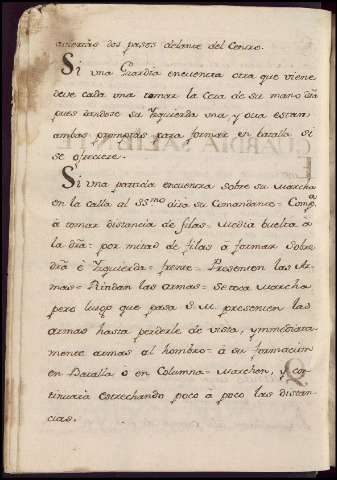 avierán dos pasos delante del Centro.
Si una Guardia encuentra otra que viene
deve cada una tomar la Cera de su mano dra
pues dandose su Izquierda una, y otra estan
ambas promptas para formar en batalla si
se ofreciere.
Si una partida encuentra sobre su Marcha
en la calle al SSmo dirá su Comandante = Compa
á tomar distancia de filas = Media buelta á
la dra = por mitad de filas á formar sobre
dra é Izquierda = frente = Presenten las Ar-
mas = Rindan las armas = Se toca Marcha
pero luego que pasa S. M. presenten las
armas hasta perderle de vista, ymmediata-
mente armas al hombro = á su formacion
en Batalla ó en Columna = Marchen, y con-
tinuará estrechando poco á poco las distan-
cias.